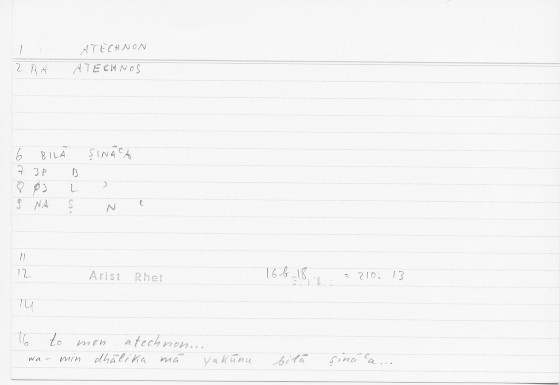 1 ATECHNON
2 AA ATECHNOS
6 BILĀ ṢINĀʿA
7 3P B
8 Ø3 L ʾ
9 NA Ṣ N ʿ
11
12 Arist Rhet 16b 18 = 210. 13
14
16 to men atechnon...
wa-min dhālika mā yakūnu bilā ṣināʿa...